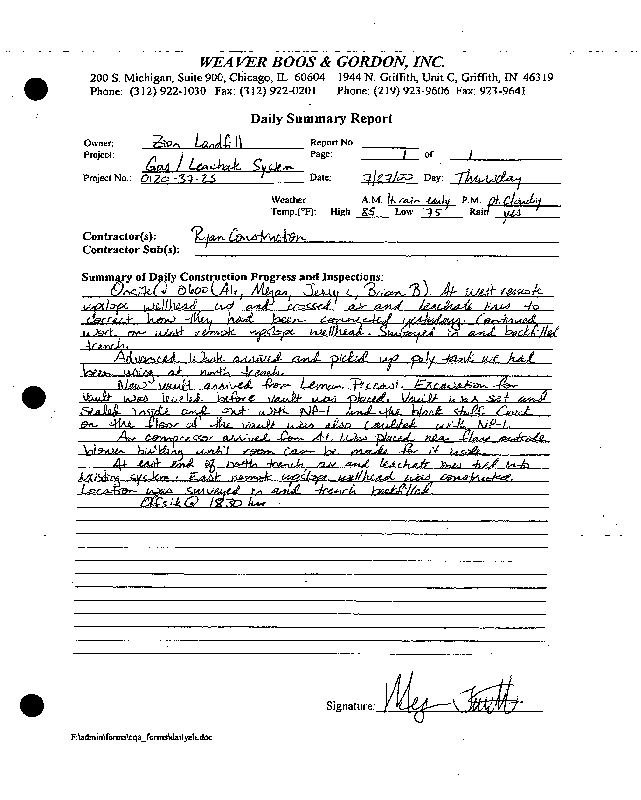 WEAVER BOOS & GORDON, INC.
200 S. Michigan, Suite 900, Chicago, IL 60604 1944 N. Griffith, Unit C, Griffith, IN 46319
Phone: (312) 922-1030 Fax: (312) 922-0201 Phone: (219) 923-9606 Fax: 923-9641
Daily Summary Report
Owner: Zion Landfill Report No
Project: Gas / Leachate System Page: 1 of 1
Project No.: 0120-37-25 Date: 7/27/00 Day: Thursday
Weather A.M. lt rain early P.M. pt. cloudy
Temp.(°F): High 85 Low 75 Rain yes
Contractor(s): Ryan Construction
Contractor Sub(s):
Summary of Daily Construction Progress and Inspections:
Onsite @ 0600 (Al, Megan, Jerry L, Brian B) At west remote
upslope wellhead cut and crossed air and leachate lines to
correct how they had been connected yesterday. Continued
work on west remote upslope wellhead. Surveyed in and backfilled
trench.
Advanced Tank arrived and picked up poly tank we had
been using at north trench.
New vault arrived from Lemon. Excavation for
vault was leveled before vault was placed. Vault was set and
sealed inside and out with NP-1 and the black stuff.
on the floor of the vault was also caulked with NP-1.
Air compressor arrived from At. Was placed near flare outside
blower building until room can be made for it inside.
At east end of north trench, air and leachate lines tied into
existing system. East remote upslope wellhead was constructed.
Location was surveyed in and trench backfilled.
Offsite @ 1830 hrs
Signature:
F:\admin\forms\cqa_forms\dailyeh.doc